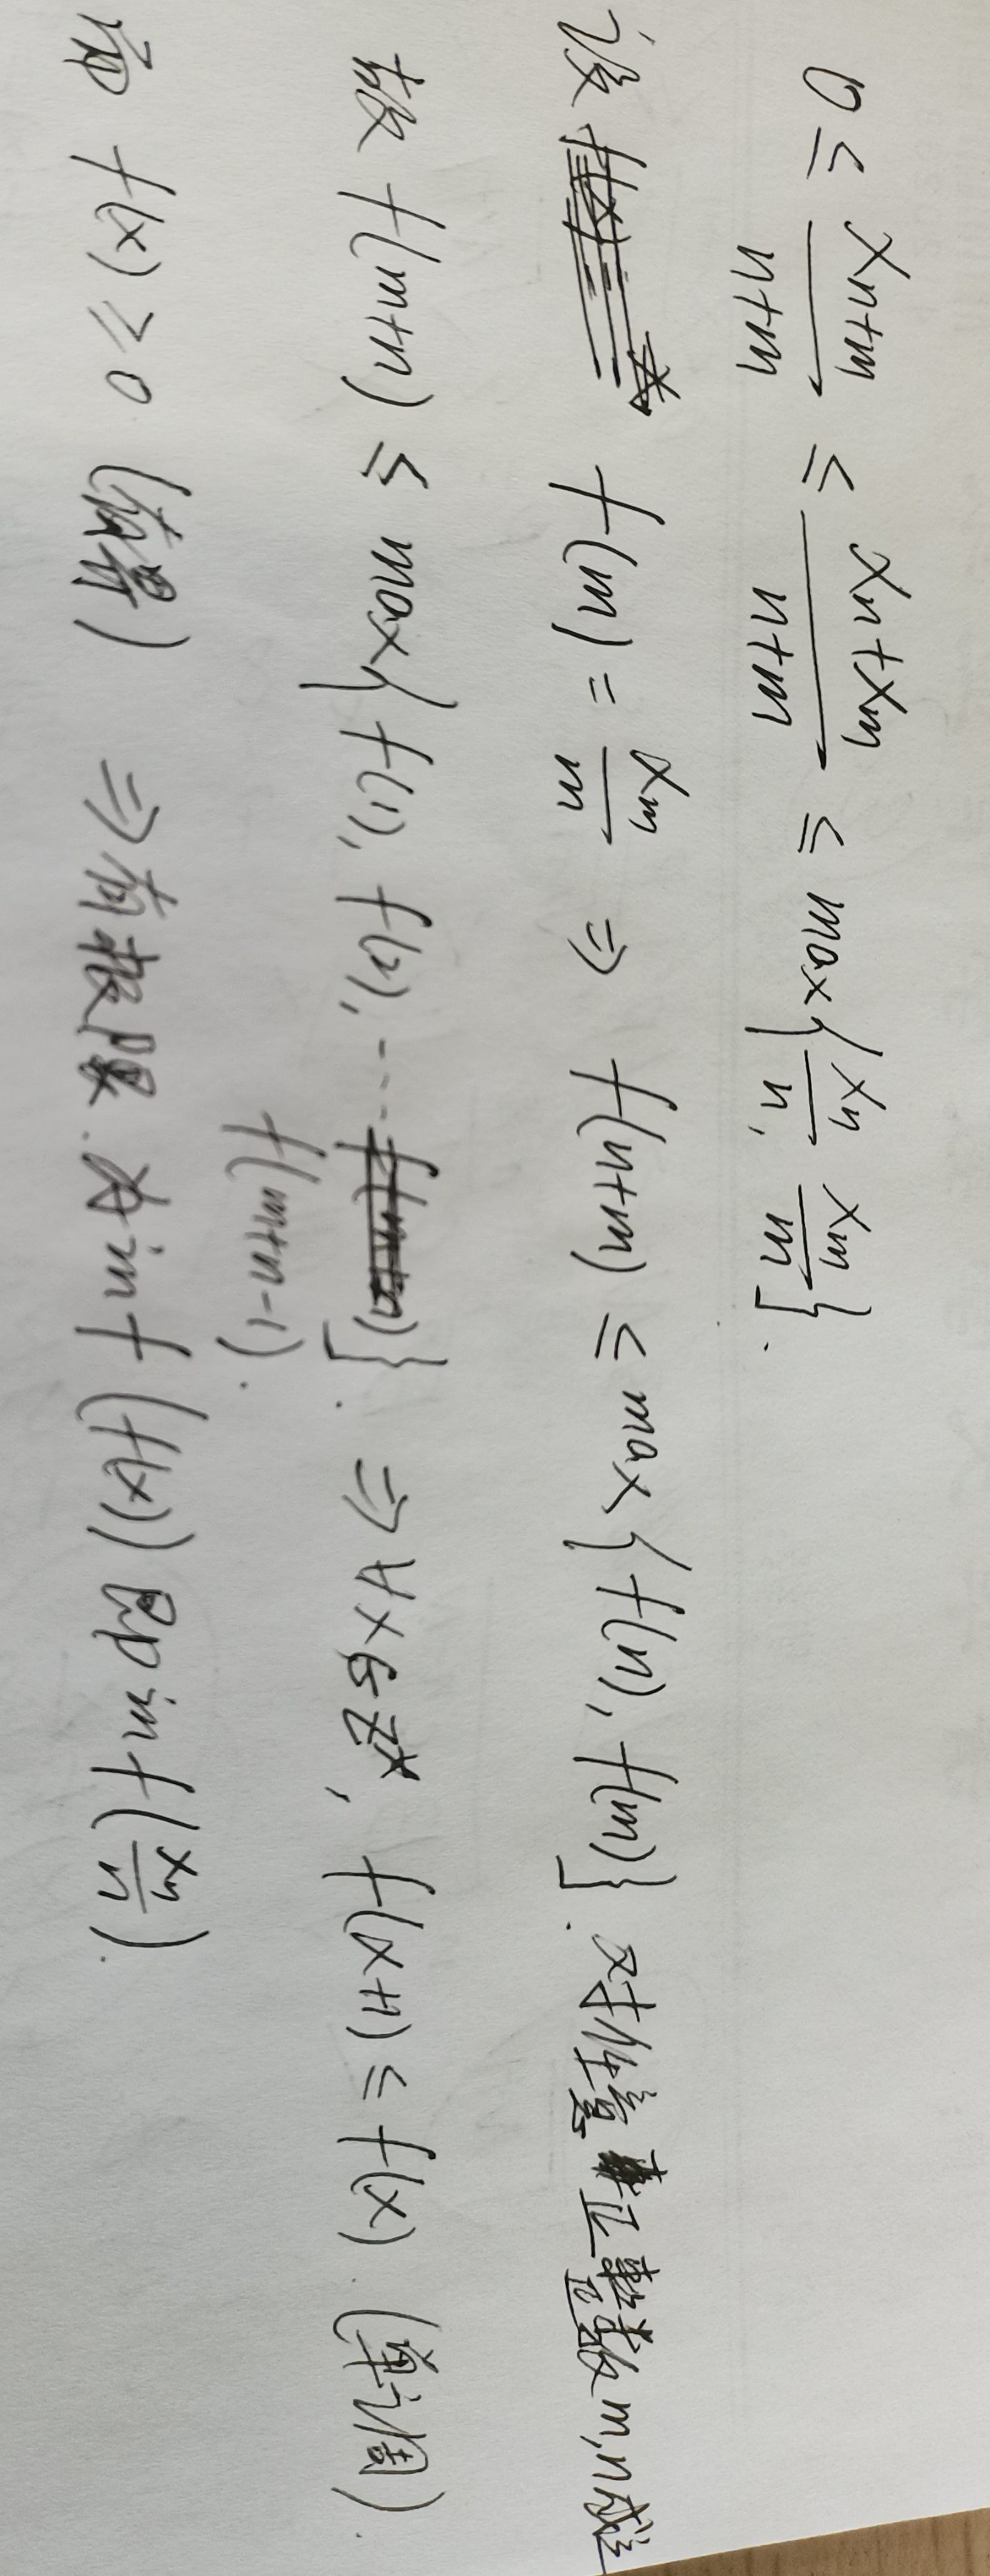 0 ≤ \frac{x_{n+m}}{n+m} ≤ \frac{x_n+x_m}{n+m} ≤ max{\frac{x_n}{n}, \frac{x_m}{m}}.
设 f(m) = \frac{x_m}{m} ⇒ f(n+m) ≤ max{f(n), f(m)}. 对任意正整数m,n成立
故 f(m+n) ≤ max{f(1), f(2), --- f(m+n-1)}. ⇒ ∀x∈Z*, f(x+1) ≤ f(x). (单调).
而 f(x) ≥ 0 (有界) ⇒ 有极限. 为inf(f(x)) 即inf(\frac{x_n}{n}).